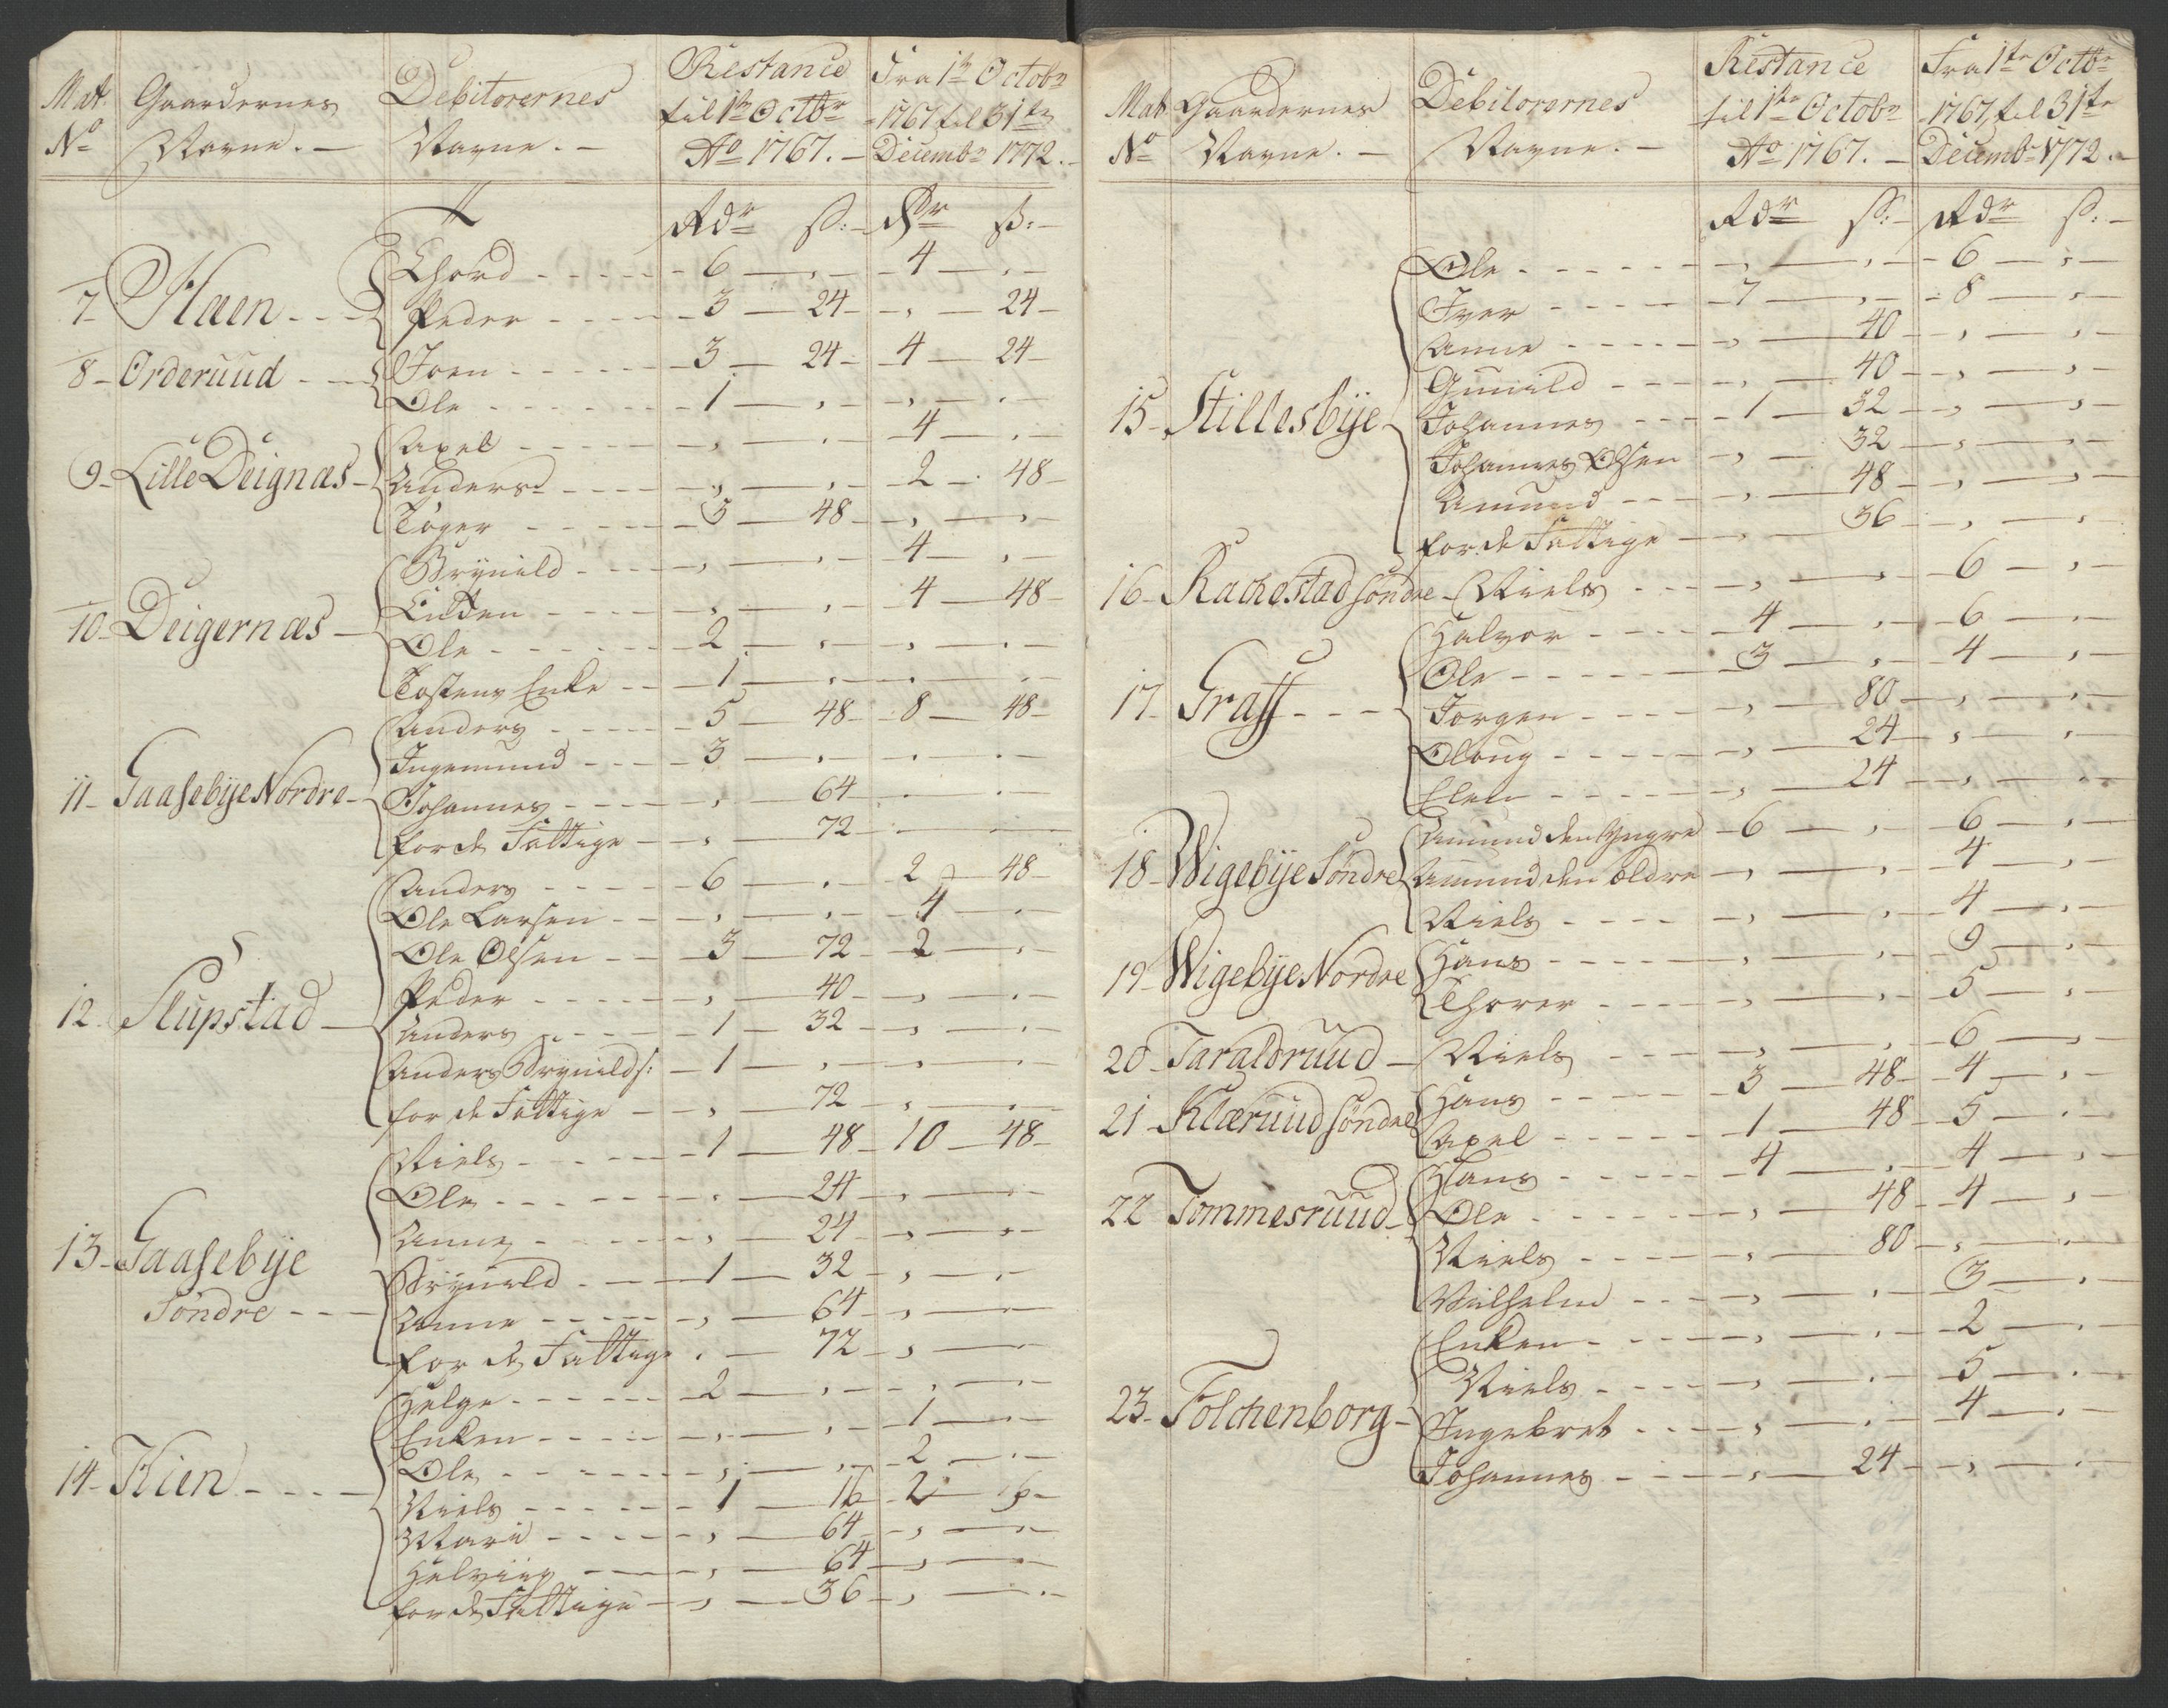 Mat. No Gaardernes Navne. — Debitorernes Navne. — Restance til 1te Octbr Ao 1767. — Fra 1te Octobr 1767 til 31te Decembr 1772. —
Rdr ß: Rdr ß:
7 Haen Thord 6 — , — 4 — , —
Peder 3 — 24 — , — 24 —
8 Orderuud Joen 3 — 24 — 4 — 24 —
Ole 1 — , — , — , —
9 Lille Deignæs Axel , — , — 4 — , —
Anders , — , — 2 — 48 —
Töger 3 — 48 — , — , —
10 Deigernæs Brynild , — , — 4 — , —
Enken , — , — 4 — 48 —
Ole 2 — , — , — , —
Tostens Enke 1 — , — , — , —
11 Gaasebÿe Nordre Anders 5 — 48 — 8 — 48 —
Ingemund 3 — , — , — , —
Johannes , — 64 — , — , —
for de Fattige , — 72 — , — , —
12 Slupstad Anders 6 — , — 2 — 48 —
Ole Larsen , — , — 4 — , —
Ole Olsen 3 — 72 — 2 — , —
Peder , — 40 — , — , —
Anders 1 — 32 — , — , —
Anders Brynilds: 1 — , — , — , —
for de Fattige , — 72 — , — , —
13 Gaasebÿe Söndre Niels 1 — 48 — 10 — 48 —
Ole , — 24 — , — , —
Anne , — 24 — , — , —
Brynild 1 — 32 — , — , —
Anne , — 64 — , — , —
for de Fattige , — 72 — , — , —
14 Kien Helge 2 — , — , — , —
Enken , — , — 1 — , —
Ole , — , — 2 — , —
Niels 1 — 16 — 2 —
Mari , — 64 — , — , —
Helvig , — 64 — , — , —
for de Fattige , — 36 — , — , —
Mat No Gaardernes Navne. — Debitorernes Navne. — Restance til 1te Octobr Ao 1767. — Fra 1te Octbr 1767 til 31te Decembr 1772. —
Rdr ß: Rdr ß:
15 Stillesbÿe Ole , — , — 6 — , —
Iver 7 — , — 8 — , —
Anne , — 40 — , — , —
Gunild , — 40 — , — , —
Johannes 1 — 32 — , — , —
Johannes Olsen , — 32 — , — , —
Amund , — 48 — , — , —
for de Fattige , — 36 — , — , —
16 Rachestad söndre Niels , — , — 6 — , —
17 Graff Halvor 4 — , — 6 — , —
Ole 3 — , — 4 — , —
Jorgen , — 80 — , — , —
Oloug , — 24 — , — , —
Elen , — 24 — , — , —
18 Wigebÿe Söndre Amund den Yngre 6 — , — 6 — , —
Amund den ældre , — , — 4 — , —
Niels , — , — 4 — , —
19 Wigebÿe Nordre Hans , — , — 9 — , —
Thorer , — , — 5 — , —
20 Taraldruud Niels , — , — 6 — , —
21 Klæruud söndre Hans 3 — 48 — 4 — , —
Axel 1 — 48 — 5 — , —
22 Tommesruud Hans 4 — , — 4 — , —
Ole , — 48 — 4 — , —
Niels , — 80 — , — , —
Wilhelm , — , — 3 — , —
23 Folchenborg Enken , — , — 2 — , —
Niels , — , — 5 — , —
Ingebret , — , — 4 — , —
Johannes , — 24 — , — , —